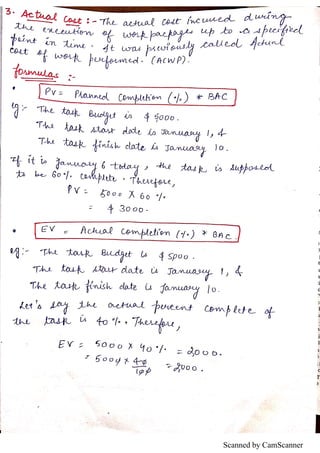 3. Actual Cost :- The actual cost incurred during
the execution of work packages up to a specified
point in time. It was previously called Actual
cost of work performed. (ACWP).
Formulas :-
• PV = Planned Completion (%) * BAC
eg:- The task Budget is $ 5000.
The task start date is January 1, &
The task finish date is January 10.
If it is January 6 today, the task is supposed
to be 60% complete. Therefore,
PV = 5000 X 60 %
= $ 3000.
• EV = Actual Completion (%) * BAC
eg:- The task Budget is $ 5000.
The task start date is January 1, &
The task finish date is January 10.
Let's say the actual percent complete of
the task is 40 %. Therefore,
EV = 5000 X 40 % = 2,000.
= 5000 X 40/100 = 2000.
Scanned by CamScanner